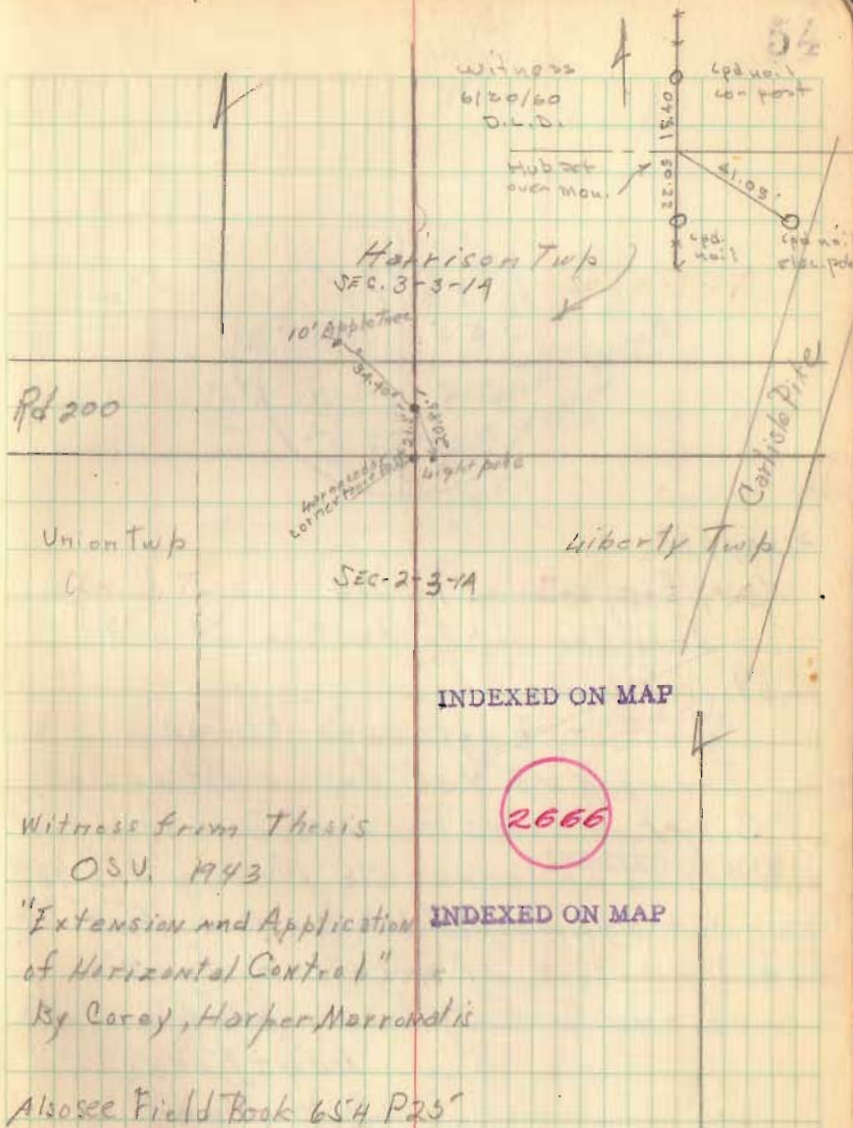 54
Witness
6/20/60
D.L.D.
cpd no. 1
con post
18.40
Hub set
over mon.
22.05
41.05'
cpd.
no. 1
cpd no. 1
elec. pole
Harrison Twp
SEC. 3-3-1A
10" Apple Tree
34.40'
Rd 200
20.85'
21.
Light pole
corner fence post
Carlisle Pike
Union Twp
Liberty Twp
SEC-2-3-1A
INDEXED ON MAP
2666
Witness from Thesis
O.S.U. 1943
"Extension and Application
INDEXED ON MAP
of Horizontal Control"
By Corey, Harper, Marromatis
Also see Field Book 654 P25